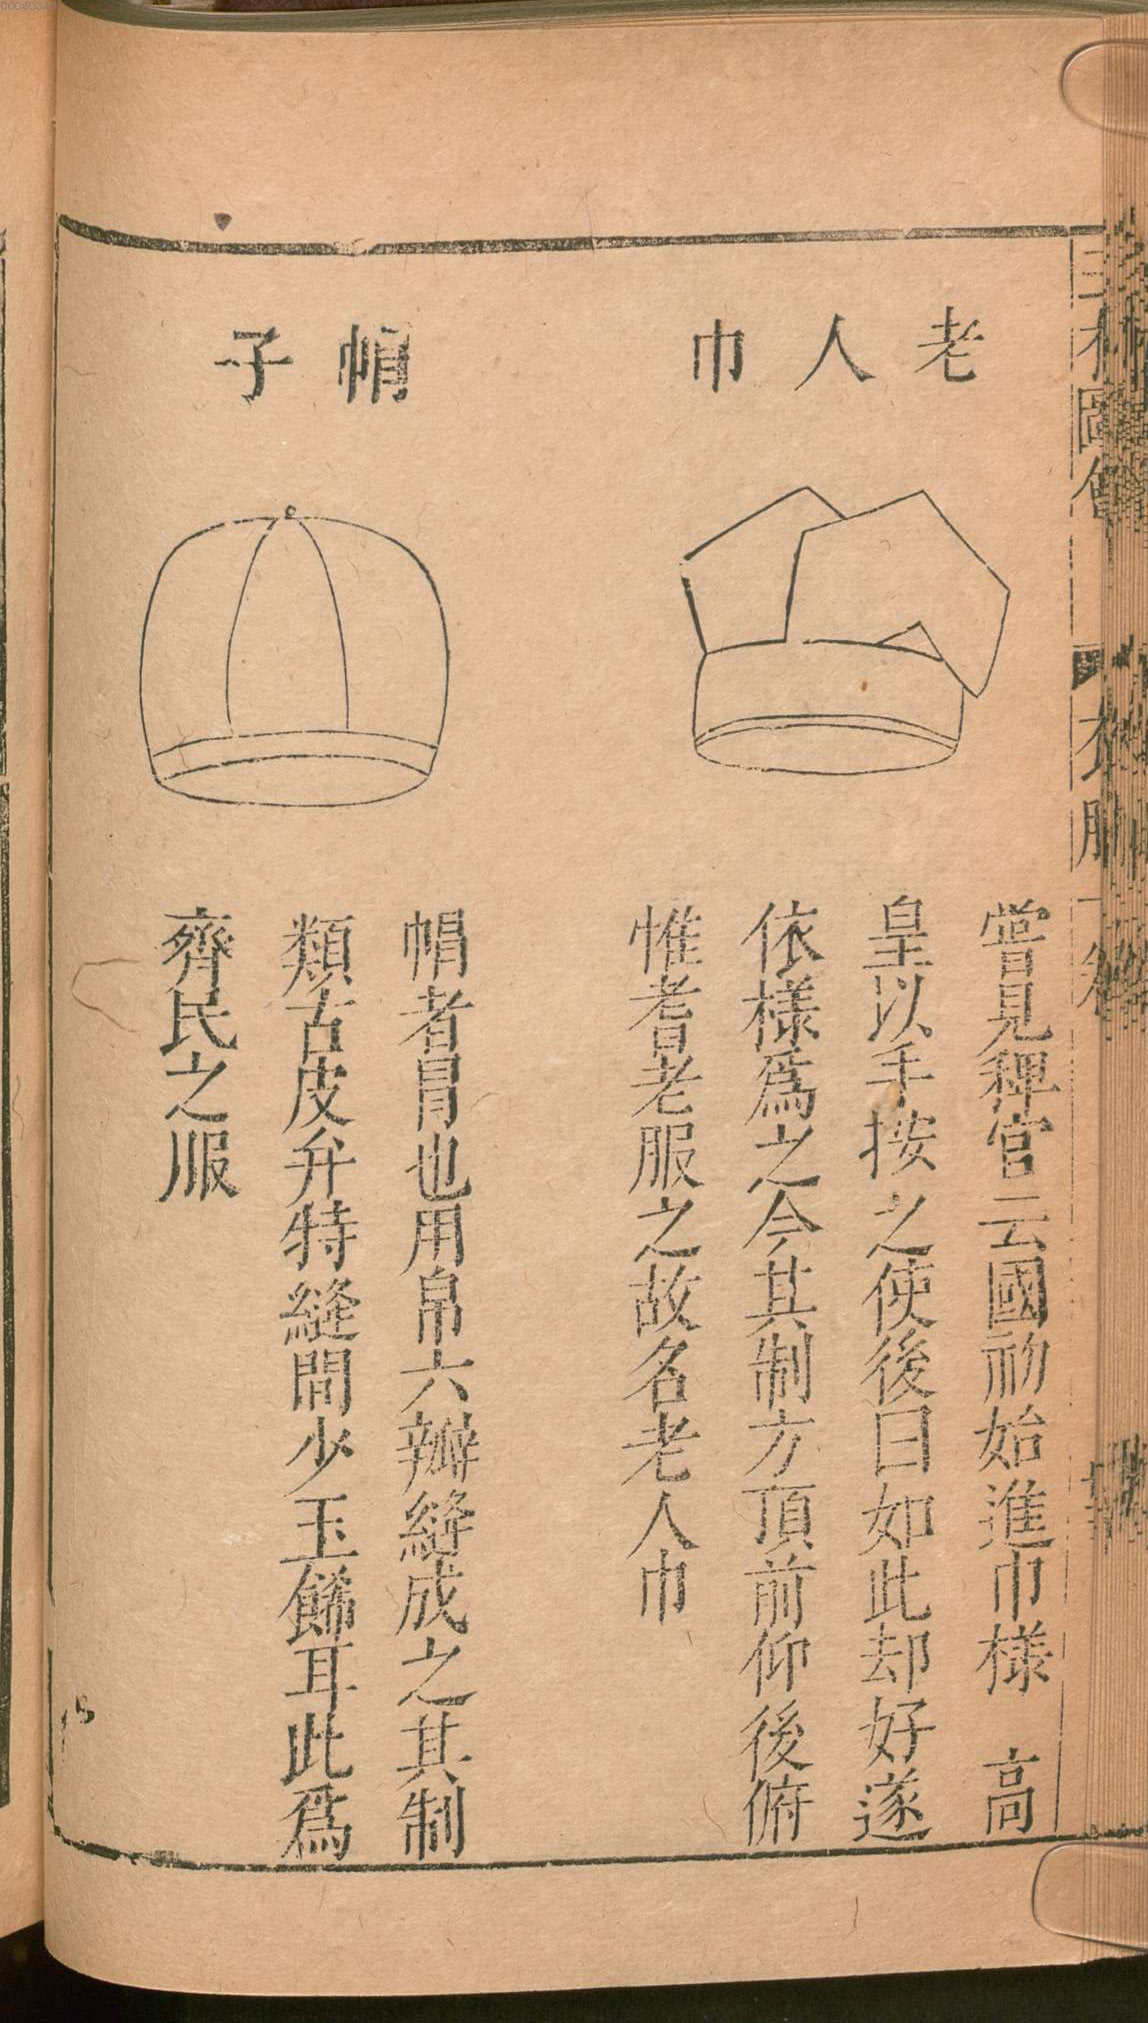 老人巾
嘗見稗官云國初始進巾樣　高
皇以手按之使後曰如此却好遂
依樣爲之今其制方頂前仰後俯
惟耆老服之故名老人巾
帽子
帽者冒也用帛六瓣縫成之其制
類古皮弁特縫間少玉飾耳此爲
齊民之服